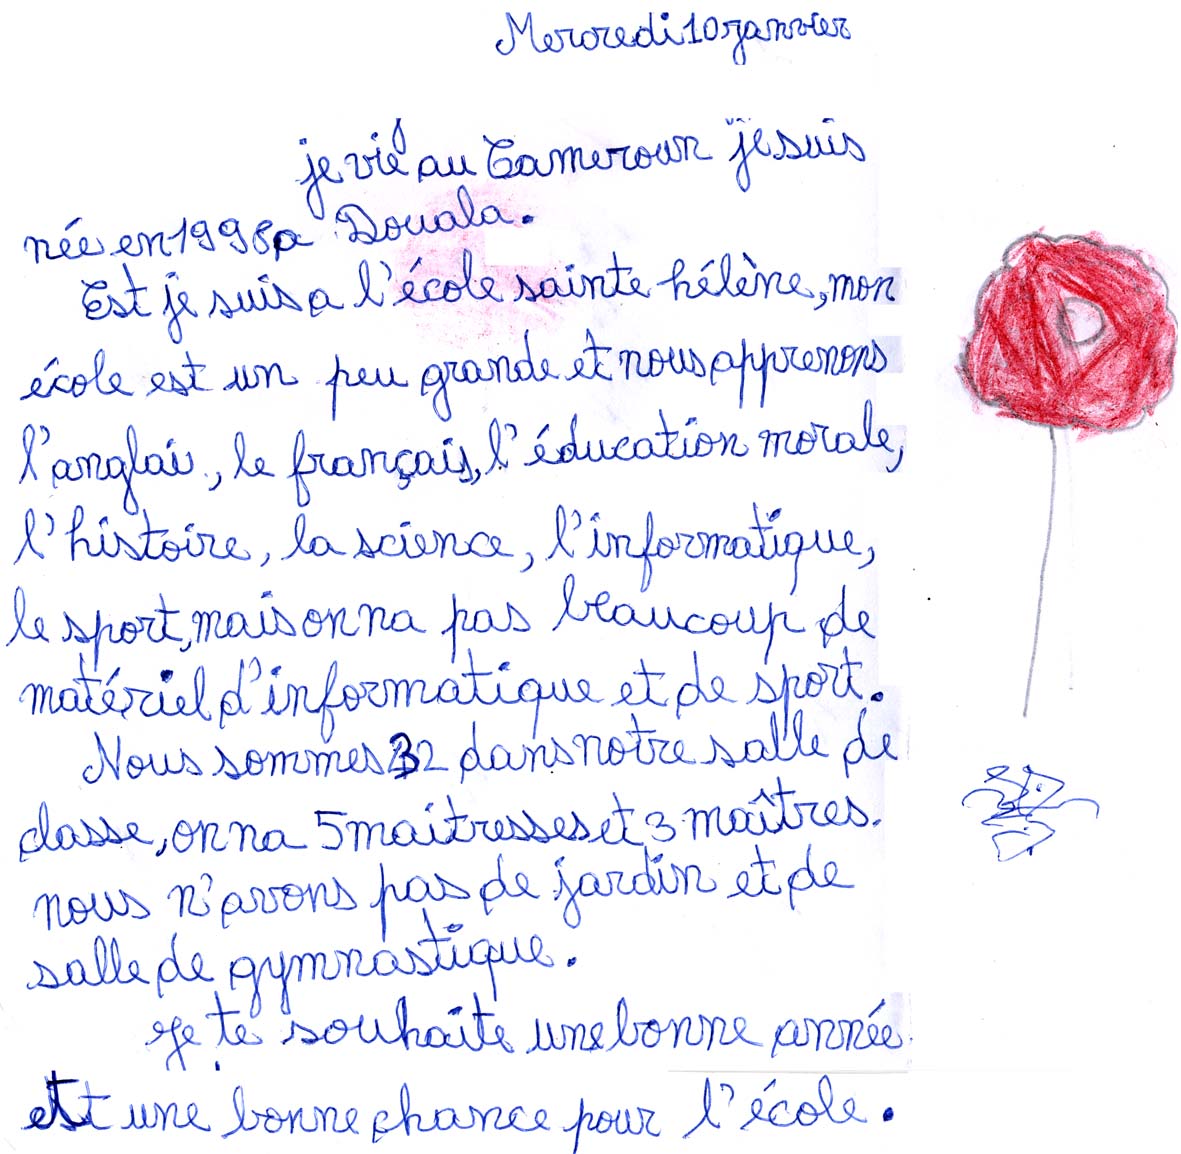 Mercredi 10 janvier
je vie au Cameroun je suis
née en 1998 a Douala.
Est je suis a l'école sainte hélène, mon
école est un peu grande et nous apprenons
l'anglais, le français, l'éducation morale,
l'histoire, la science, l'informatique,
le sport, mais on na pas beaucoup de
matériel d'informatique et de sport.
Nous sommes 32 dans notre salle de
classe, on na 5 maitresses et 3 maîtres.
nous n'avons pas de jardin et de
salle de gymnastique.
Je te souhaite une bonne année
et une bonne chance pour l'école.